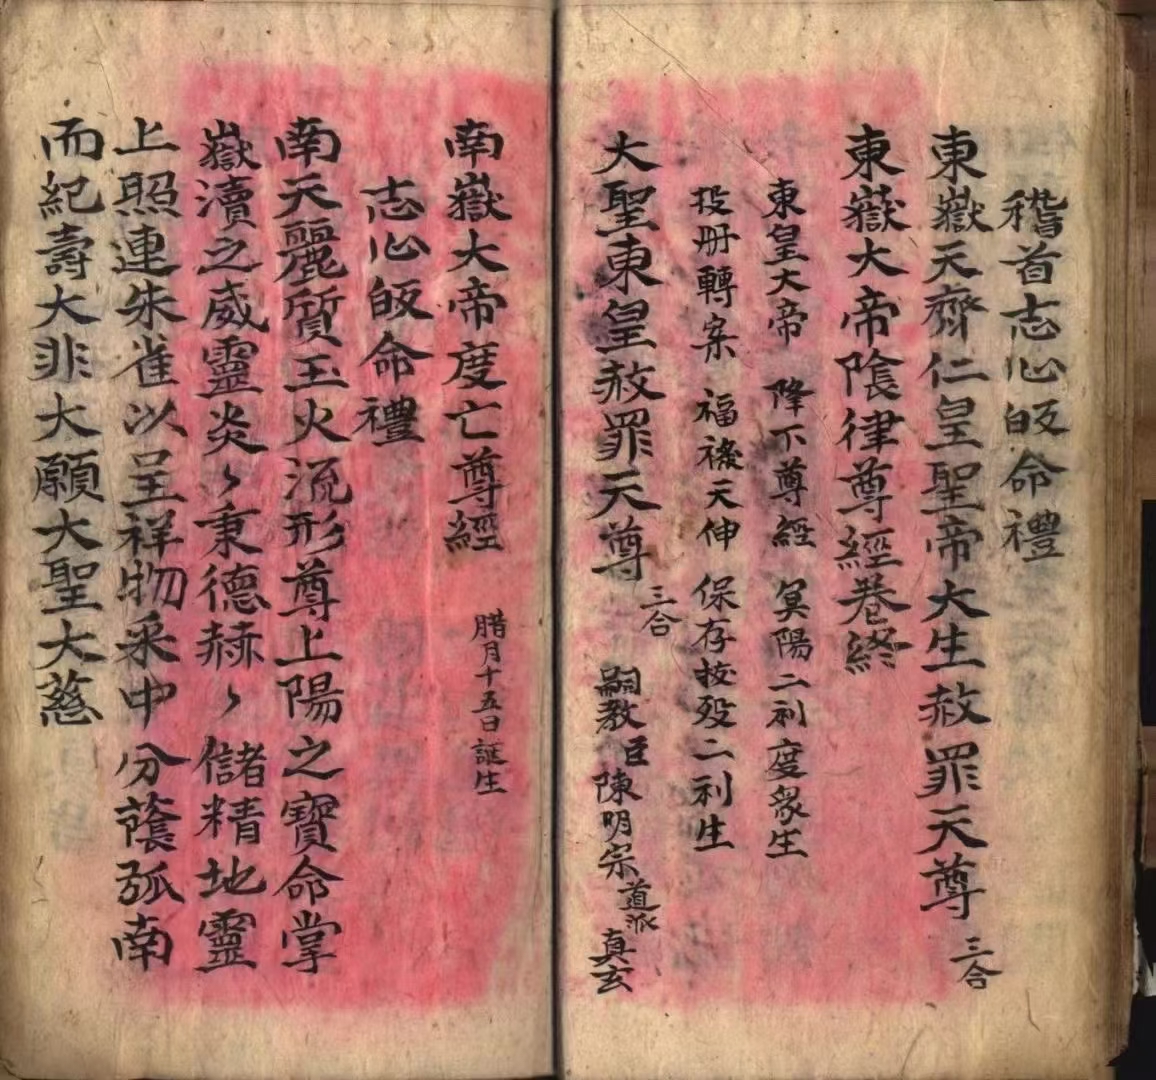 稽首志心皈命禮
東嶽天齊仁皇聖帝大生赦罪天尊 三合
東嶽大帝陰律尊經卷終
東皇大帝 降下尊經 冥陽二利度衆生
投册轉案 福禄天伸 保存拔殁二利生
大聖東皇赦罪天尊 三合 嗣教臣陳明宗道派真玄
南嶽大帝度亡尊經 腊月十五日誕生
志心皈命禮
南天麗質玉火流形尊上陽之寶命掌
嶽瀆之威靈炎〻秉德赫〻儲精地靈
上照連朱雀以呈祥物采中分蔭弧南
而紀壽大非大願大聖大慈